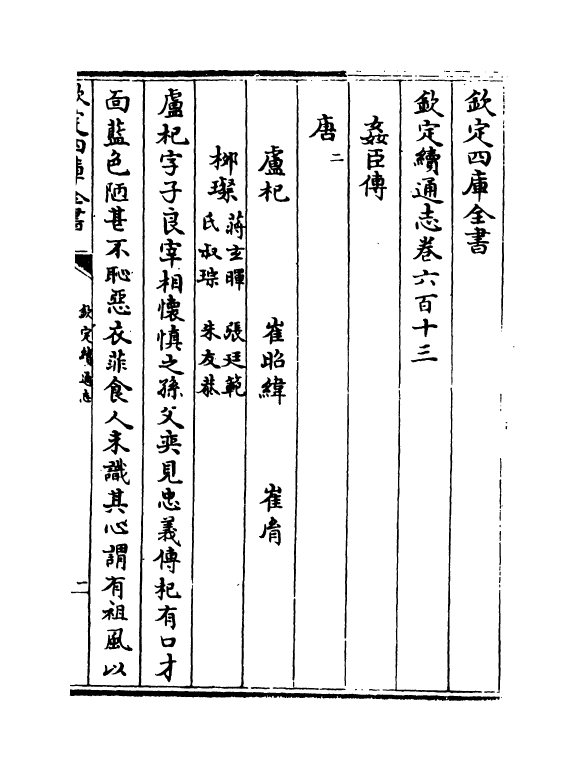 欽定四庫全書
欽定續通志卷六百十三
姦臣傳
唐二
盧杞 崔昭緯 崔胤
柳璨 蔣玄暉 張廷範 氏叔琮 朱友恭
盧杞字子良宰相懷慎之孫父奕見忠義傳杞有口才
面藍色陋甚不恥惡衣菲食人未識其心謂有祖風以
欽定四庫全書 欽定續通志 二